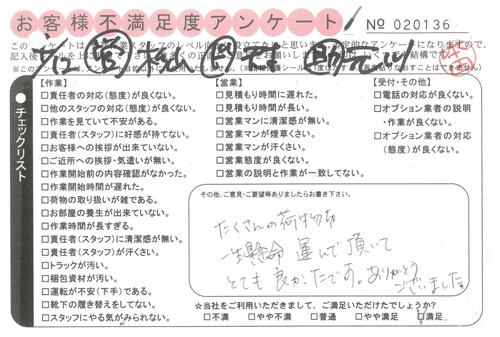 お客様不満足度アンケート
No 020136
チェックリスト
【作業】
□責任者の対応(態度)が良くない。
□他のスタッフの対応(態度)が良くない。
□作業を見ていて不安がある。
□責任者(スタッフ)に好感が持てない。
□お客様への挨拶が出来ていない。
□ご近所への挨拶・気遣いが無い。
□作業開始前の内容確認がなかった。
□作業開始時間が遅れた。
□荷物の取り扱いが雑である。
□お部屋の養生が出来ていない。
□作業時間が長すぎる。
□責任者(スタッフ)に清潔感が無い。
□責任者(スタッフ)が汗くさい。
□トラックが汚い。
□梱包資材が汚い。
□運転が不安(下手)である。
□靴下の履き替えをしてない。
□スタッフにやる気がみられない。
【営業】
□見積もり時間に遅れた。
□見積もり時間が長い。
□営業マンに清潔感が無い。
□営業マンが煙草くさい。
□営業マンが汗くさい。
□営業態度が良くない。
□営業の説明と作業が一致してない。
【受付・その他】
□電話の対応が良くない。
□オプション業者の説明
・作業が良くない。
□オプション業者の対応
(態度)が良くない。
その他、ご意見・ご要望等ありましたらお書き下さい。
たくさんの荷物を
一生懸命 運んで頂いて
とても良かったです。ありがとう
ございました。
☆当社をご利用いただきまして、ご満足いただけたでしょうか?
□不満 □やや不満 □普通 □やや満足 □満足